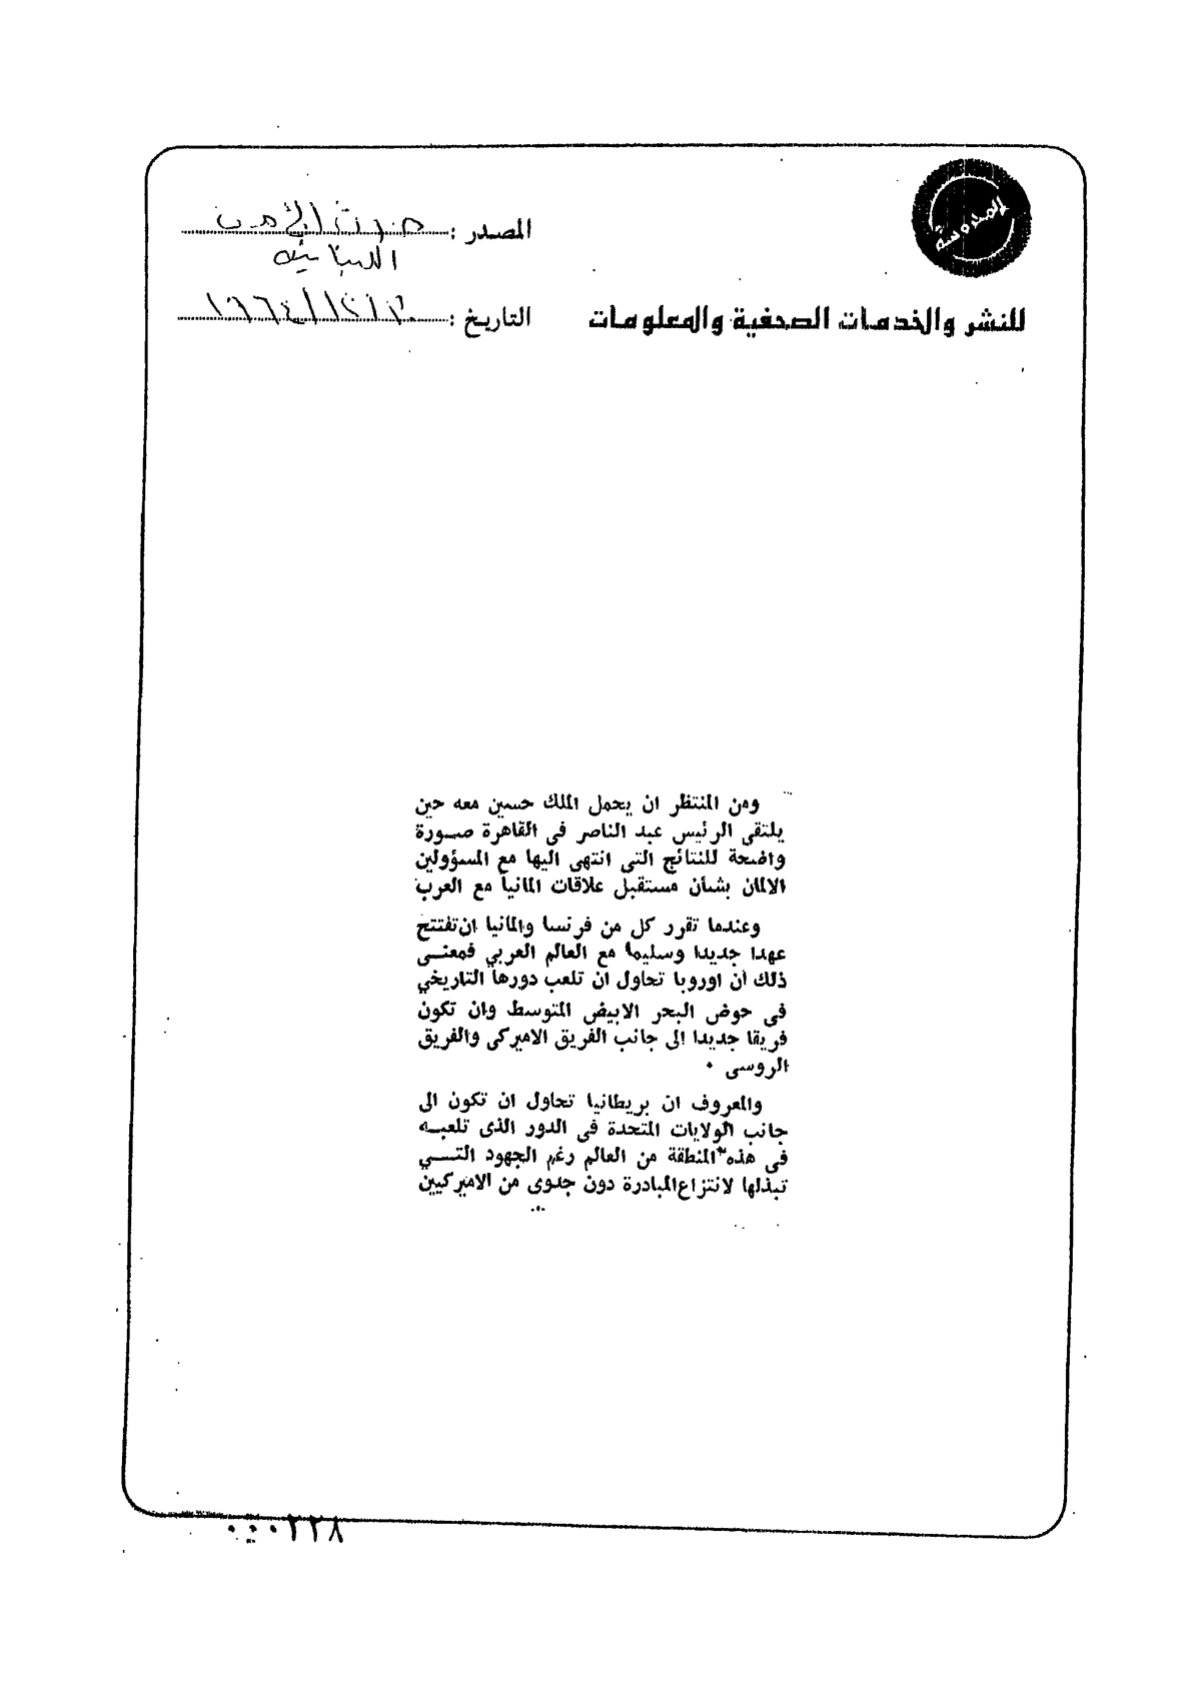 المصدر : صوت العروبة
اللبنانية
للنشر والخدمات الصحفية والمعلومات
التاريخ :
ومن المنتظر ان يحمل الملك حسين معه حين
يلتقى الرئيس عبد الناصر فى القاهرة صـورة
واضحة للنتائج التى انتهى اليها مع المسؤولين
الالمان بشأن مستقبل علاقات المانيا مع العرب
وعندما تقرر كل من فرنسا والمانيا ان تفتتح
عهدا جديدا وسليما مع العالم العربي فمعنـى
ذلك أن اوروبا تحاول ان تلعب دورها التاريخي
فى حوض البحر الابيض المتوسط وان تكون
فريقا جديدا الى جانب الفريق الاميركى والفريق
الروسى ٠
والمعروف ان بريطانيا تحاول ان تكون الى
جانب الولايات المتحدة فى الدور الذى تلعبـه
فى هذه المنطقة من العالم رغم الجهود التـــي
تبذلها لانتزاع المبادرة دون جدوى من الاميركيين
٠٠٠٢٢٨